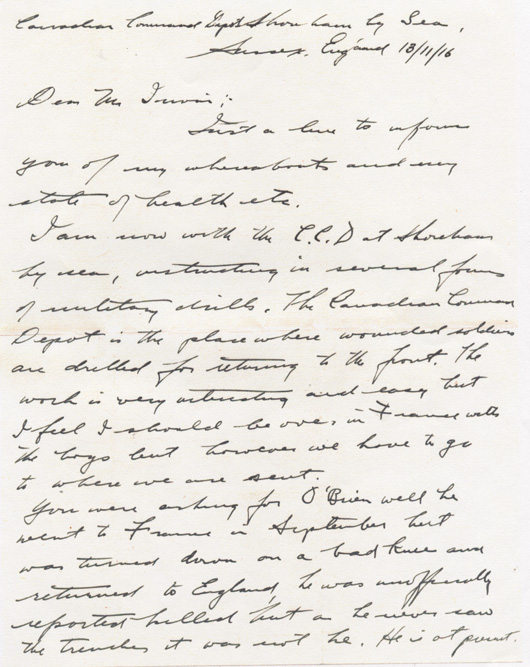 Canadian Command Depot Shoreham by Sea,
Sussex, England 13/11/16
Dear Mr Irwin;-
Just a line to inform
you of my whereabouts and my
state of health etc.
I am now with the C.C.D at Shoreham
by sea, instructing in several forms
of military drills. The Canadian Command
Depot is the place where wounded soldiers
are drilled for returning to the front. The
work is very interesting and easy but
I feel I should be over in France with
the boys but however we have to go
to where we are sent.
You were asking for O'Brien well he
went to France in September but
was turned down on a bad knee and
returned to England, he was unofficially
reported killed but as he never saw
the trenches it was not he. He is at present